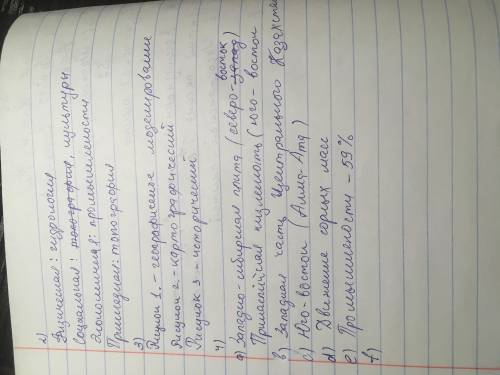 2)
Физическая: гидрология
Социальная: топография, культуры
Экономичная: промышлемости
Прикладная: топография
3)
Рисунок 1. - географическое моделирование
Рисунок 2 - картографический
Рисунок 3 - исторический
4)
восток
a) Западно-сибирская плита (северо-запад)
Прикаспийская низменность (юго-восток
b) Западная часть Центрального Казахстана
c) Юго-восток (Алма-Ата)
d) Движение горных масс
e) Промышлемости - 59%
f)